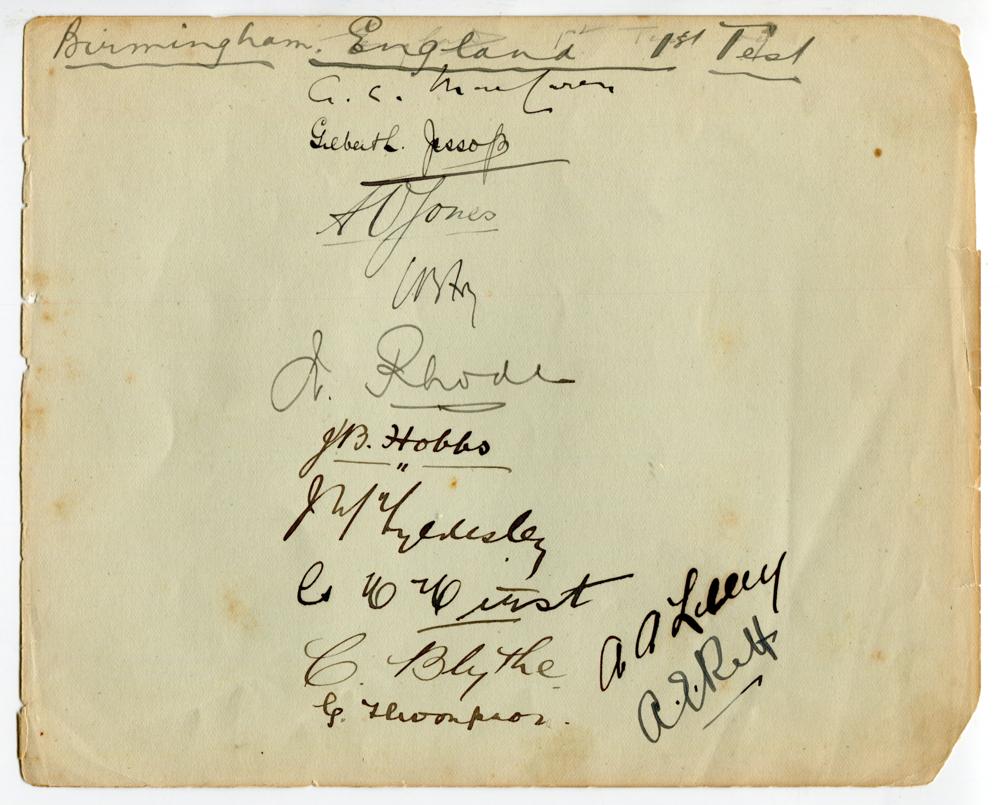 Birmingham. England 1st Test
A. C. MacLaren
Gilbert L. Jessop
A O Jones
CB Fry
W. Rhodes
J.B. Hobbs
J T Tyldesley
G H Hirst
C. Blythe
G. Thompson.
A A Lilley
A. E. Relf